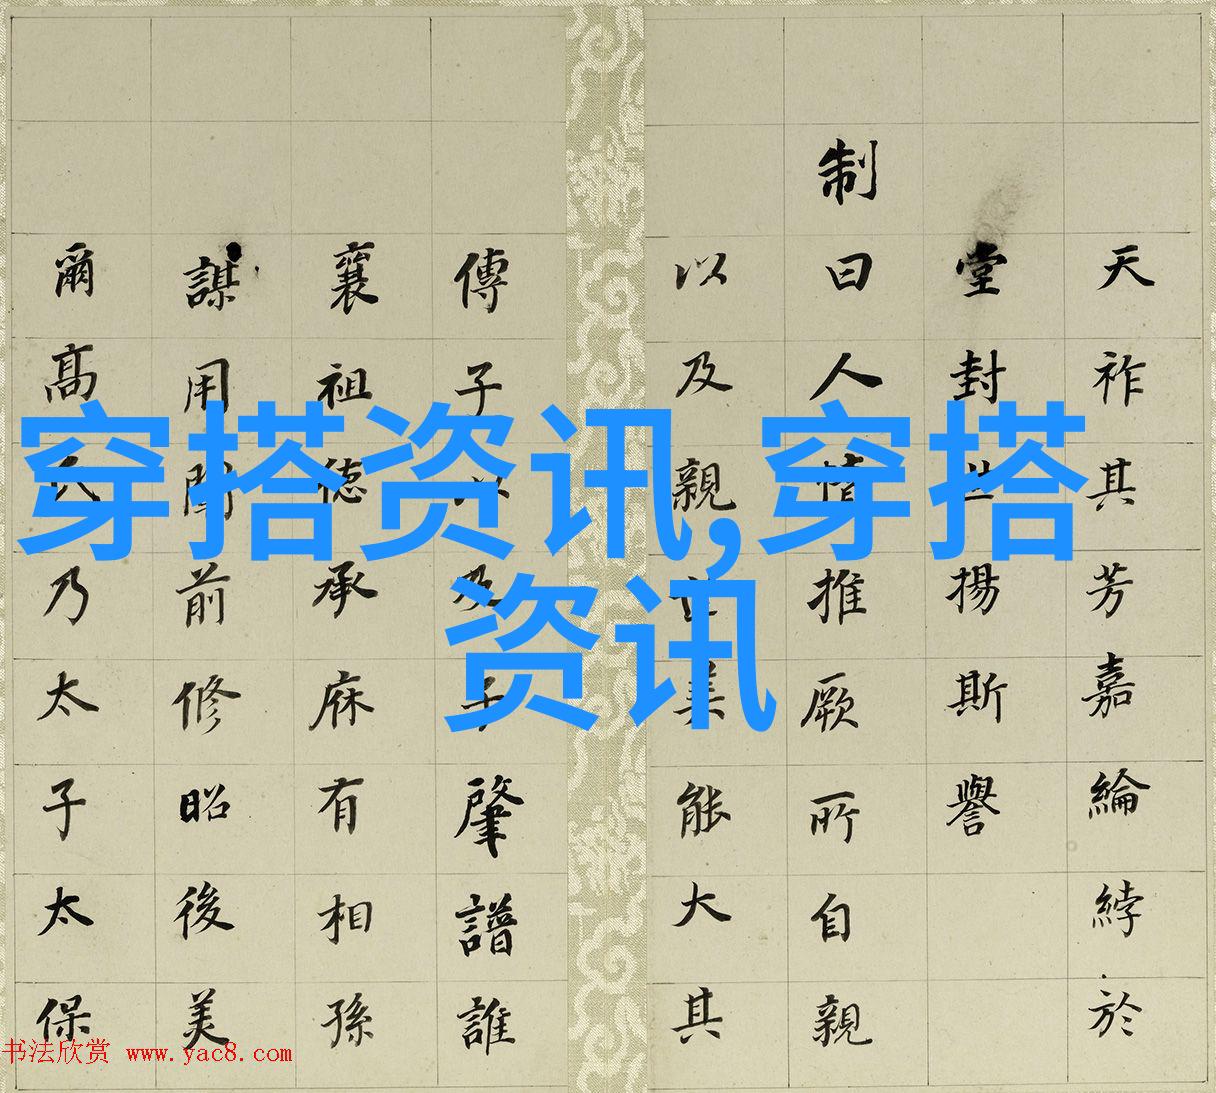 天祚其芳嘉綸綍於
堂封世揚斯譽
制曰人情推厥所自親
以及親世美能大其
傳子以及子肇譜誰
襄祖德承庥有相孫
謀用前修昭後美
爾高氏乃太子太保
穿搭资讯,穿搭
资讯
书法欣赏 www.yac8.com